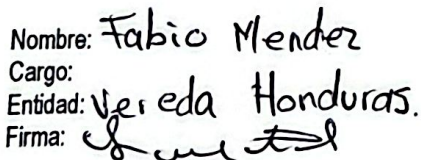 Nombre: Fabio Mendez
Cargo:
Entidad: Vereda Honduras.
Firma: